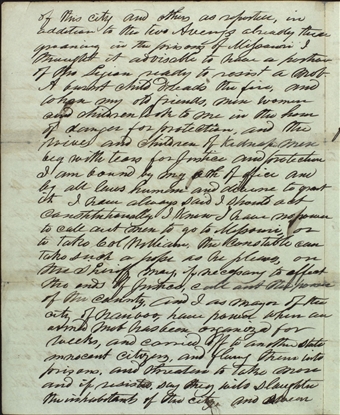 of this city and others as reported, in
addition to the two Averys already there
groaning in the prisons of Missouri I
thought it advisable to have a portion
of the Legion ready to resist a Mob
A burnt child dreads the fire, and
when my old friends, men women
and children look to me in the hour
of danger for protection, and the
wives and children of kidnap men
beg with tears for Justice and protection
I am bound by my oath of office and
by all laws human and devine to grant
it. I have always said I should act
constitutionally I know I have no power
to call out men to go to Missouri, or
to take Col Williams, the Constable can
take such a posse as he please, or
the Sheriff may, if necessary to effect
the ends of Justice, call out the power
of the County, and I as mayor of the
city of Nauvoo have power when an
armed mob has been organized for
weeks, and carried off to another state
innocent citizens, and flung them into
prisons, and threaten to take more
and if resisted, say they will slaughter
the inhabitants of the city and